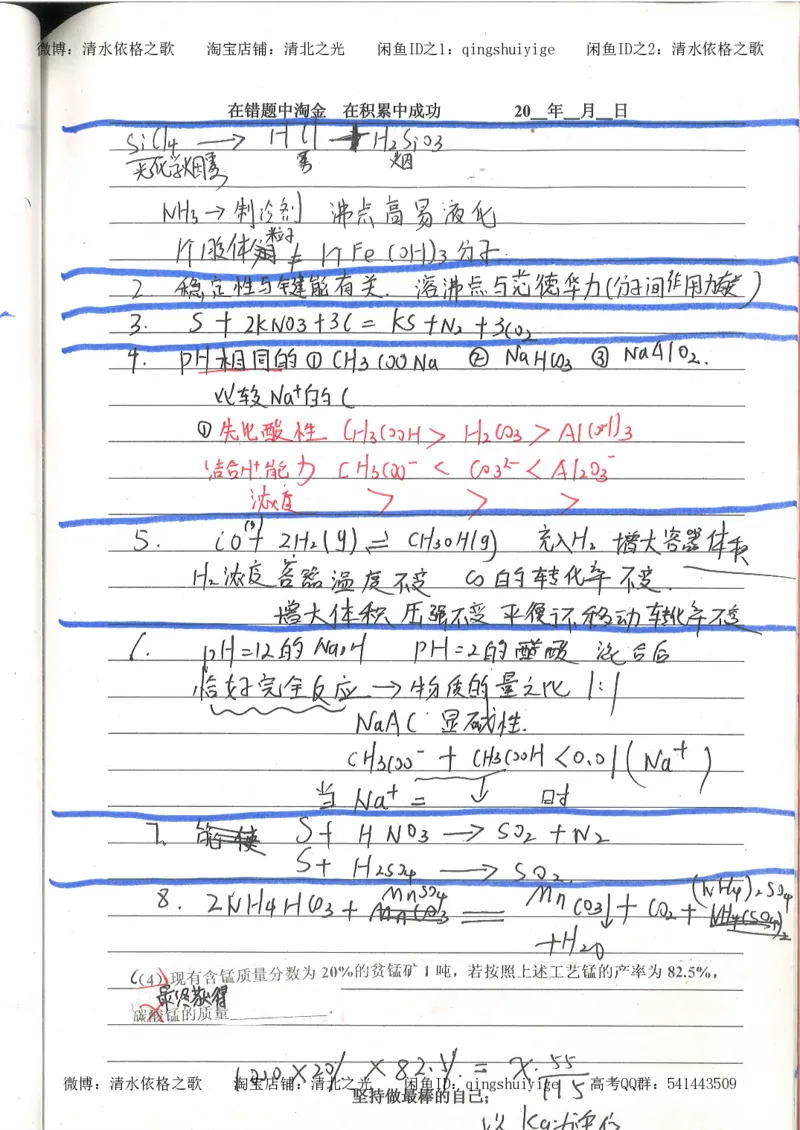 微博：清水依格之歌 淘宝店铺：清北之光 闲鱼ID之1：qingshuiyige 闲鱼ID之2：清水依格之歌
在错题中淘金 在积累中成功 20__年__月__日
SiCl4 → HCl + H2SiO3
光化学烟雾 雾 烟
NH3→制冷剂 沸点高易液化
1个胶体粒子 ≠ 1个Fe(OH)3分子.
2 稳定性与键能有关. 溶沸点与范德华力(分子间作用力有关)
3. S + 2KNO3 + 3C = KS + N2 + 3CO2
4. pH相同的 ① CH3COONa ② NaHCO3 ③ NaAlO2.
比较Na+的C
①先比酸性 CH3COOH > H2CO3 > Al(OH)3
结合H+能力 CH3COO- < CO3 2- < Al2O3-
浓度 > > >
5. CO(g) + 2H2(g) ⇌ CH3OH(g) 充入H2 增大容器体积
H2浓度 容器温度不变 CO的转化率不变.
增大体积 压强不变 平衡不移动 转化率不变
6. pH=12的NaOH PH=2的醋酸 混合后
恰好完全反应 → 物质的量之比 1:1
NaAC 显碱性.
CH3COO- + CH3COOH < 0.01 (Na+)
当 Na+ = ↓ 时
7. S + HNO3 → SO2 + N2
S + H2SO4 → SO2.
8. 2NH4HCO3 + MnSO4 = MnCO3↓ + CO2 + (NH4)2SO4
+H2O
(4) 现有含锰质量分数为 20%的贫锰矿 1 吨，若按照上述工艺锰的产率为 82.5%，
最终获得
碳酸锰的质量________.
1000×20% × 82.5% = x·55/115
微博：清水依格之歌 淘宝店铺：清北之光 闲鱼ID：qingshuiyige 高考QQ群：541443509
坚持做最棒的自己；
以 Kg为单位